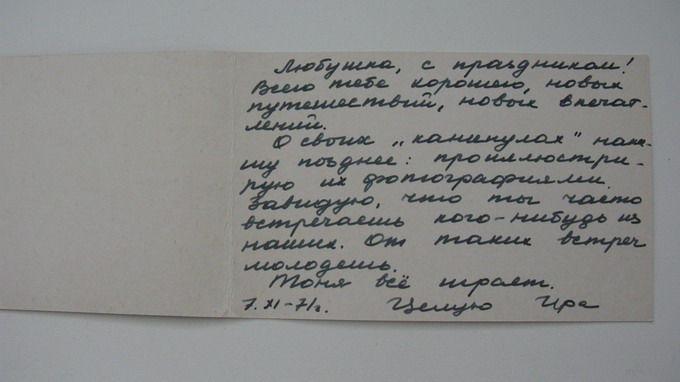 Любушка, с праздником!
Всего тебе хорошего, новых
путешествий, новых впечат-
лений.
О своих „каникулах" напи-
шу позднее: проиллюстри-
рую их фотографиями.
Завидую, что ты часто
встречаешь кого-нибудь из
наших. От таких встреч
молодеешь.
Тоня всё играет.
7.XI-71г. Целую Ира